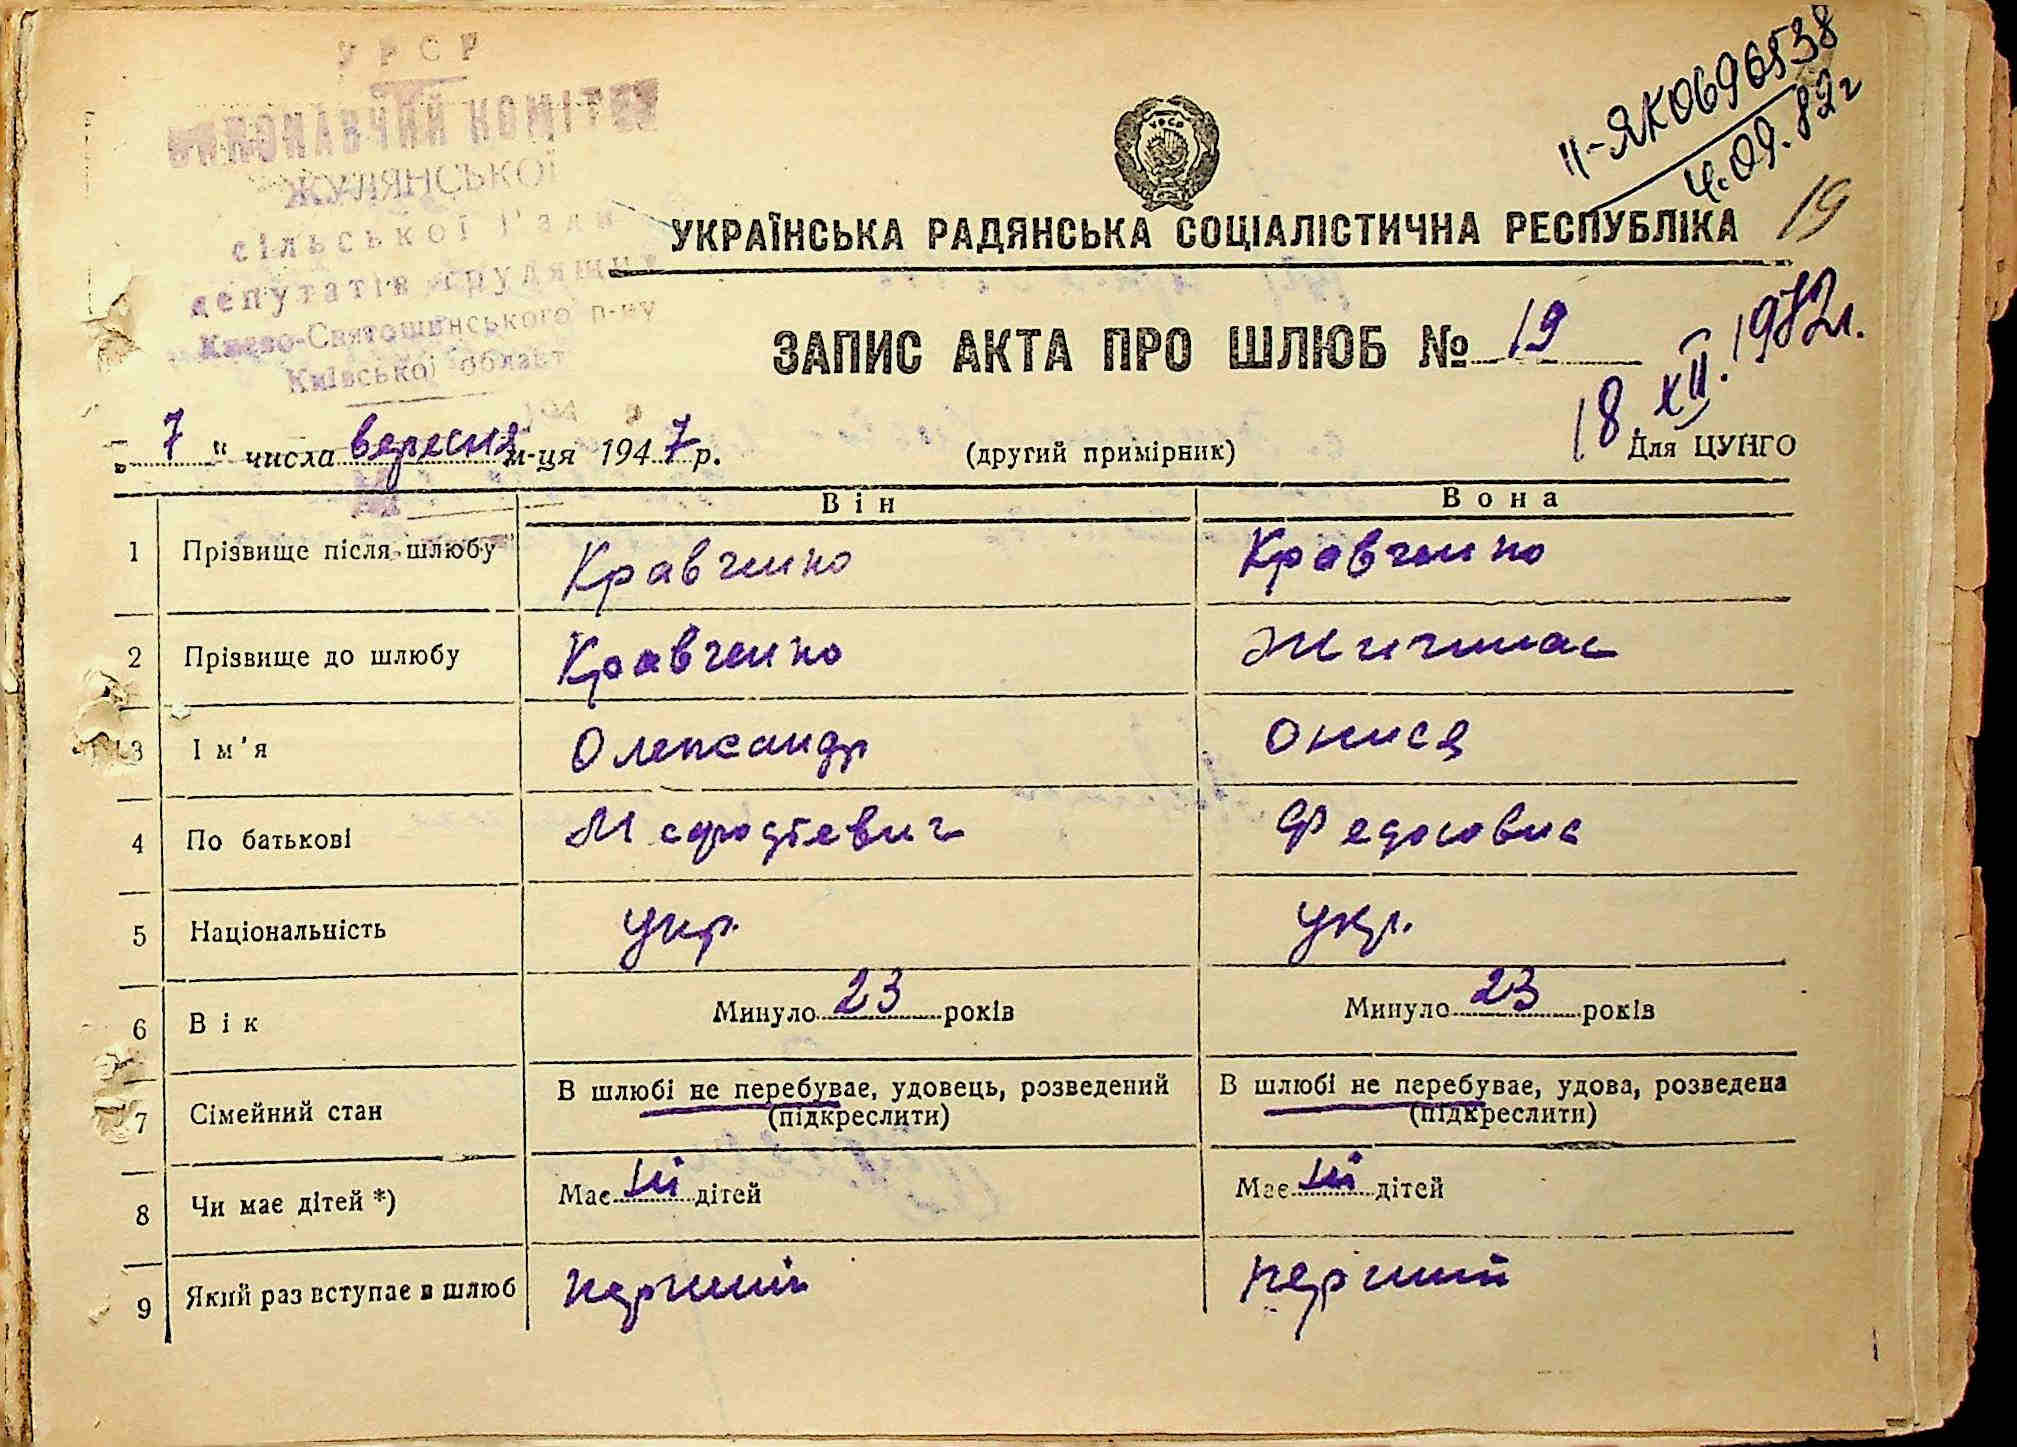 УРСР
ВИКОНАВЧИЙ КОМІТЕТ
ЖУЛЯНСЬКОЇ
сільської Ради
депутатів трудящих
Києво-Святошинського р-ну
Київської област
II-ЯК0696538
4.09.82г
19
УРСР
УКРАЇНСЬКА РАДЯНСЬКА СОЦІАЛІСТИЧНА РЕСПУБЛІКА
ЗАПИС АКТА ПРО ШЛЮБ № 19
18 XII. 1972
„ 7 " числа вересня м-ця 1947 р. (другий примірник) Для ЦУНГО
Він Вона
1 Прізвище після шлюбу Кравченко Кравченко
2 Прізвище до шлюбу Кравченко
3 Ім'я Олександр Онися
4 По батькові Мефодієвич Федосовна
5 Національність укр. укр.
6 Вік Минуло 23 років Минуло 23 років
7 Сімейний стан В шлюбі не перебуває, удовець, розведений В шлюбі не перебуває, удова, розведена
(підкреслити) (підкреслити)
8 Чи має дітей *) Має ні дітей Має ні дітей
9 Який раз вступає в шлюб перший перший